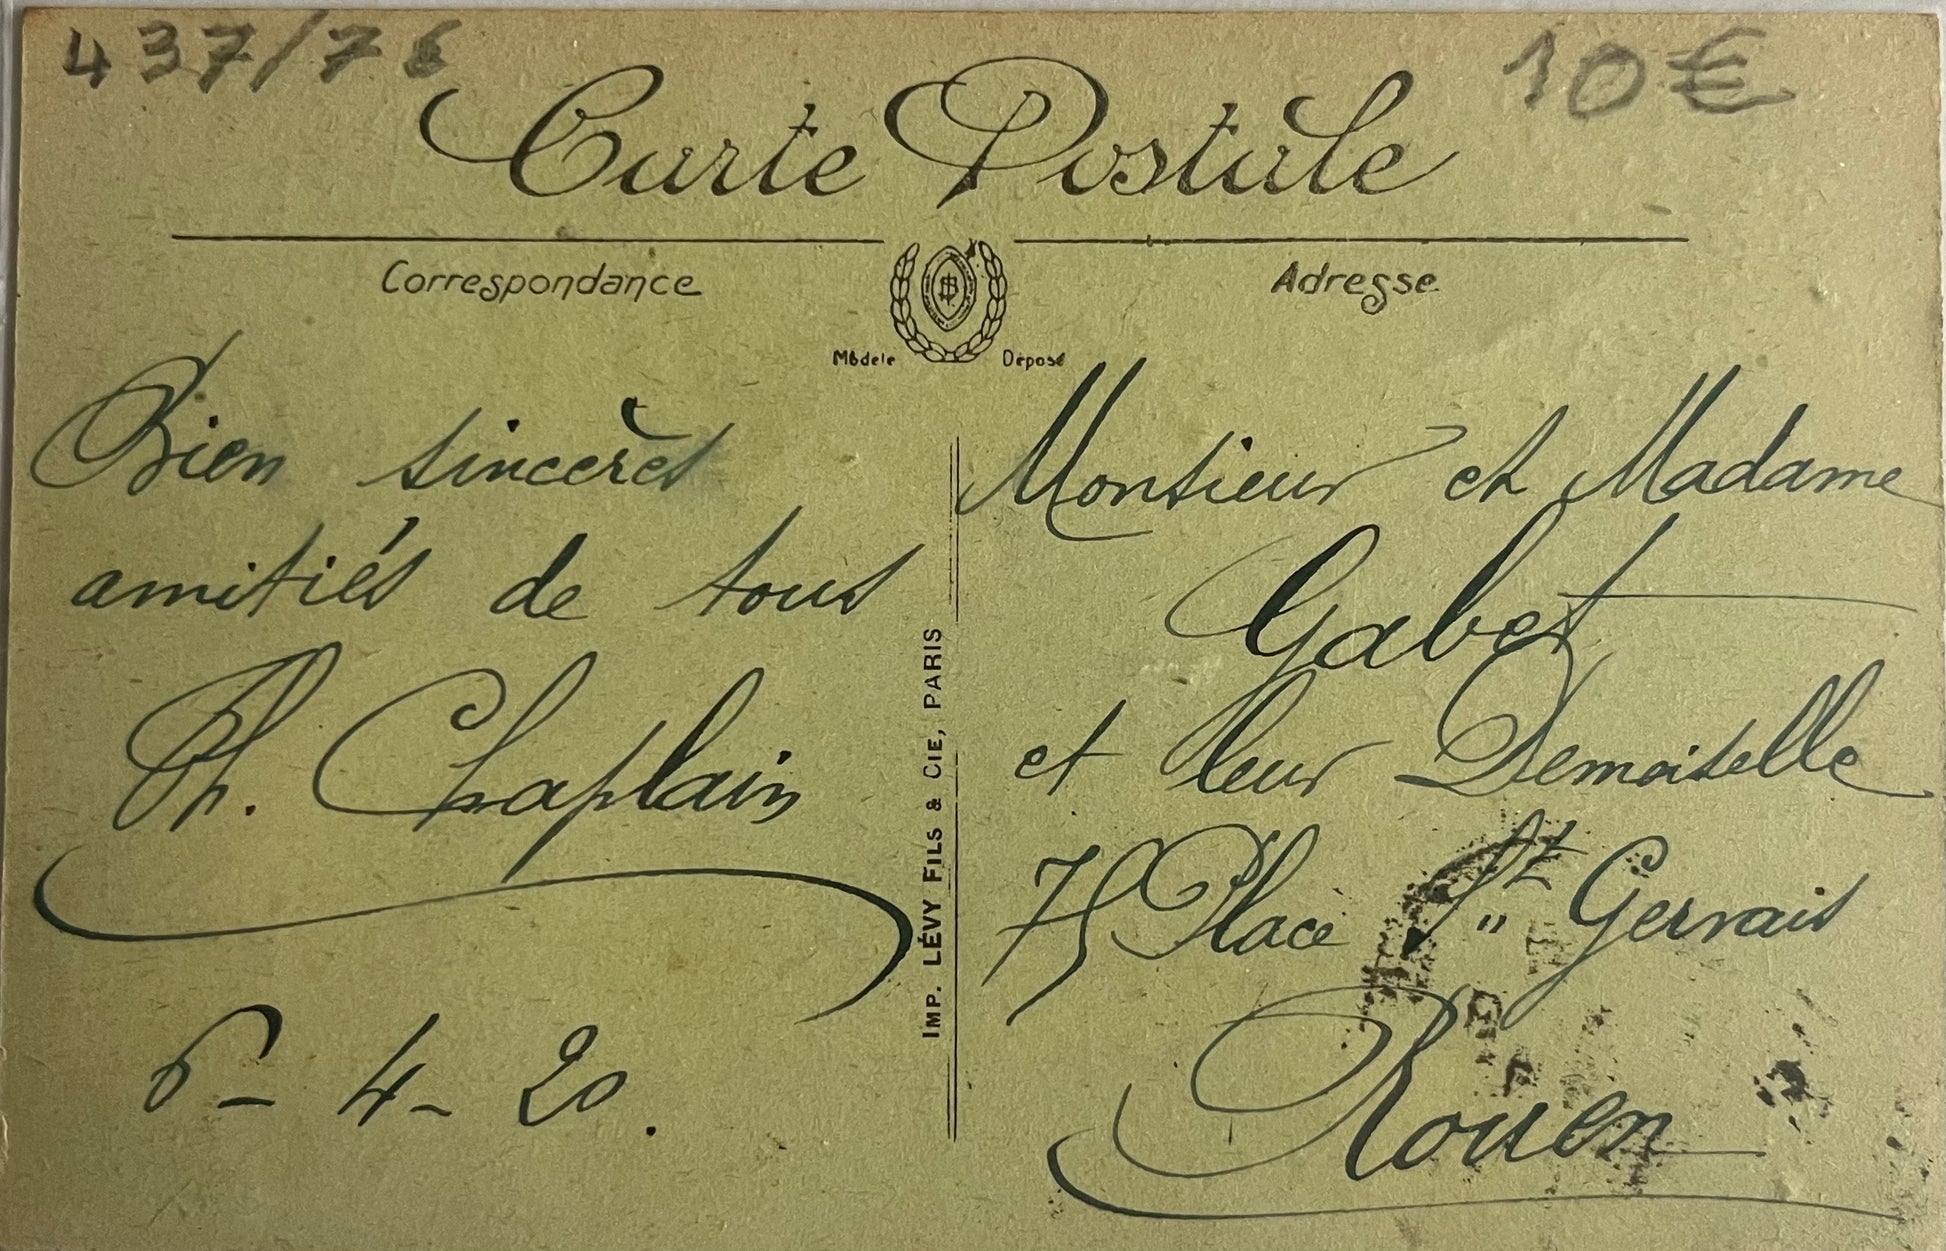 437/76
10€
Carte Postale
Correspondance
Adresse
Modèle Déposé
Bien sincères
amitiés de tous
Ch. Chaplain
6-4-20.
IMP. LÉVY FILS & CIE, PARIS
Monsieur et Madame
Gabet
et leur Demoiselle
75 Place St Gervais
Rouen